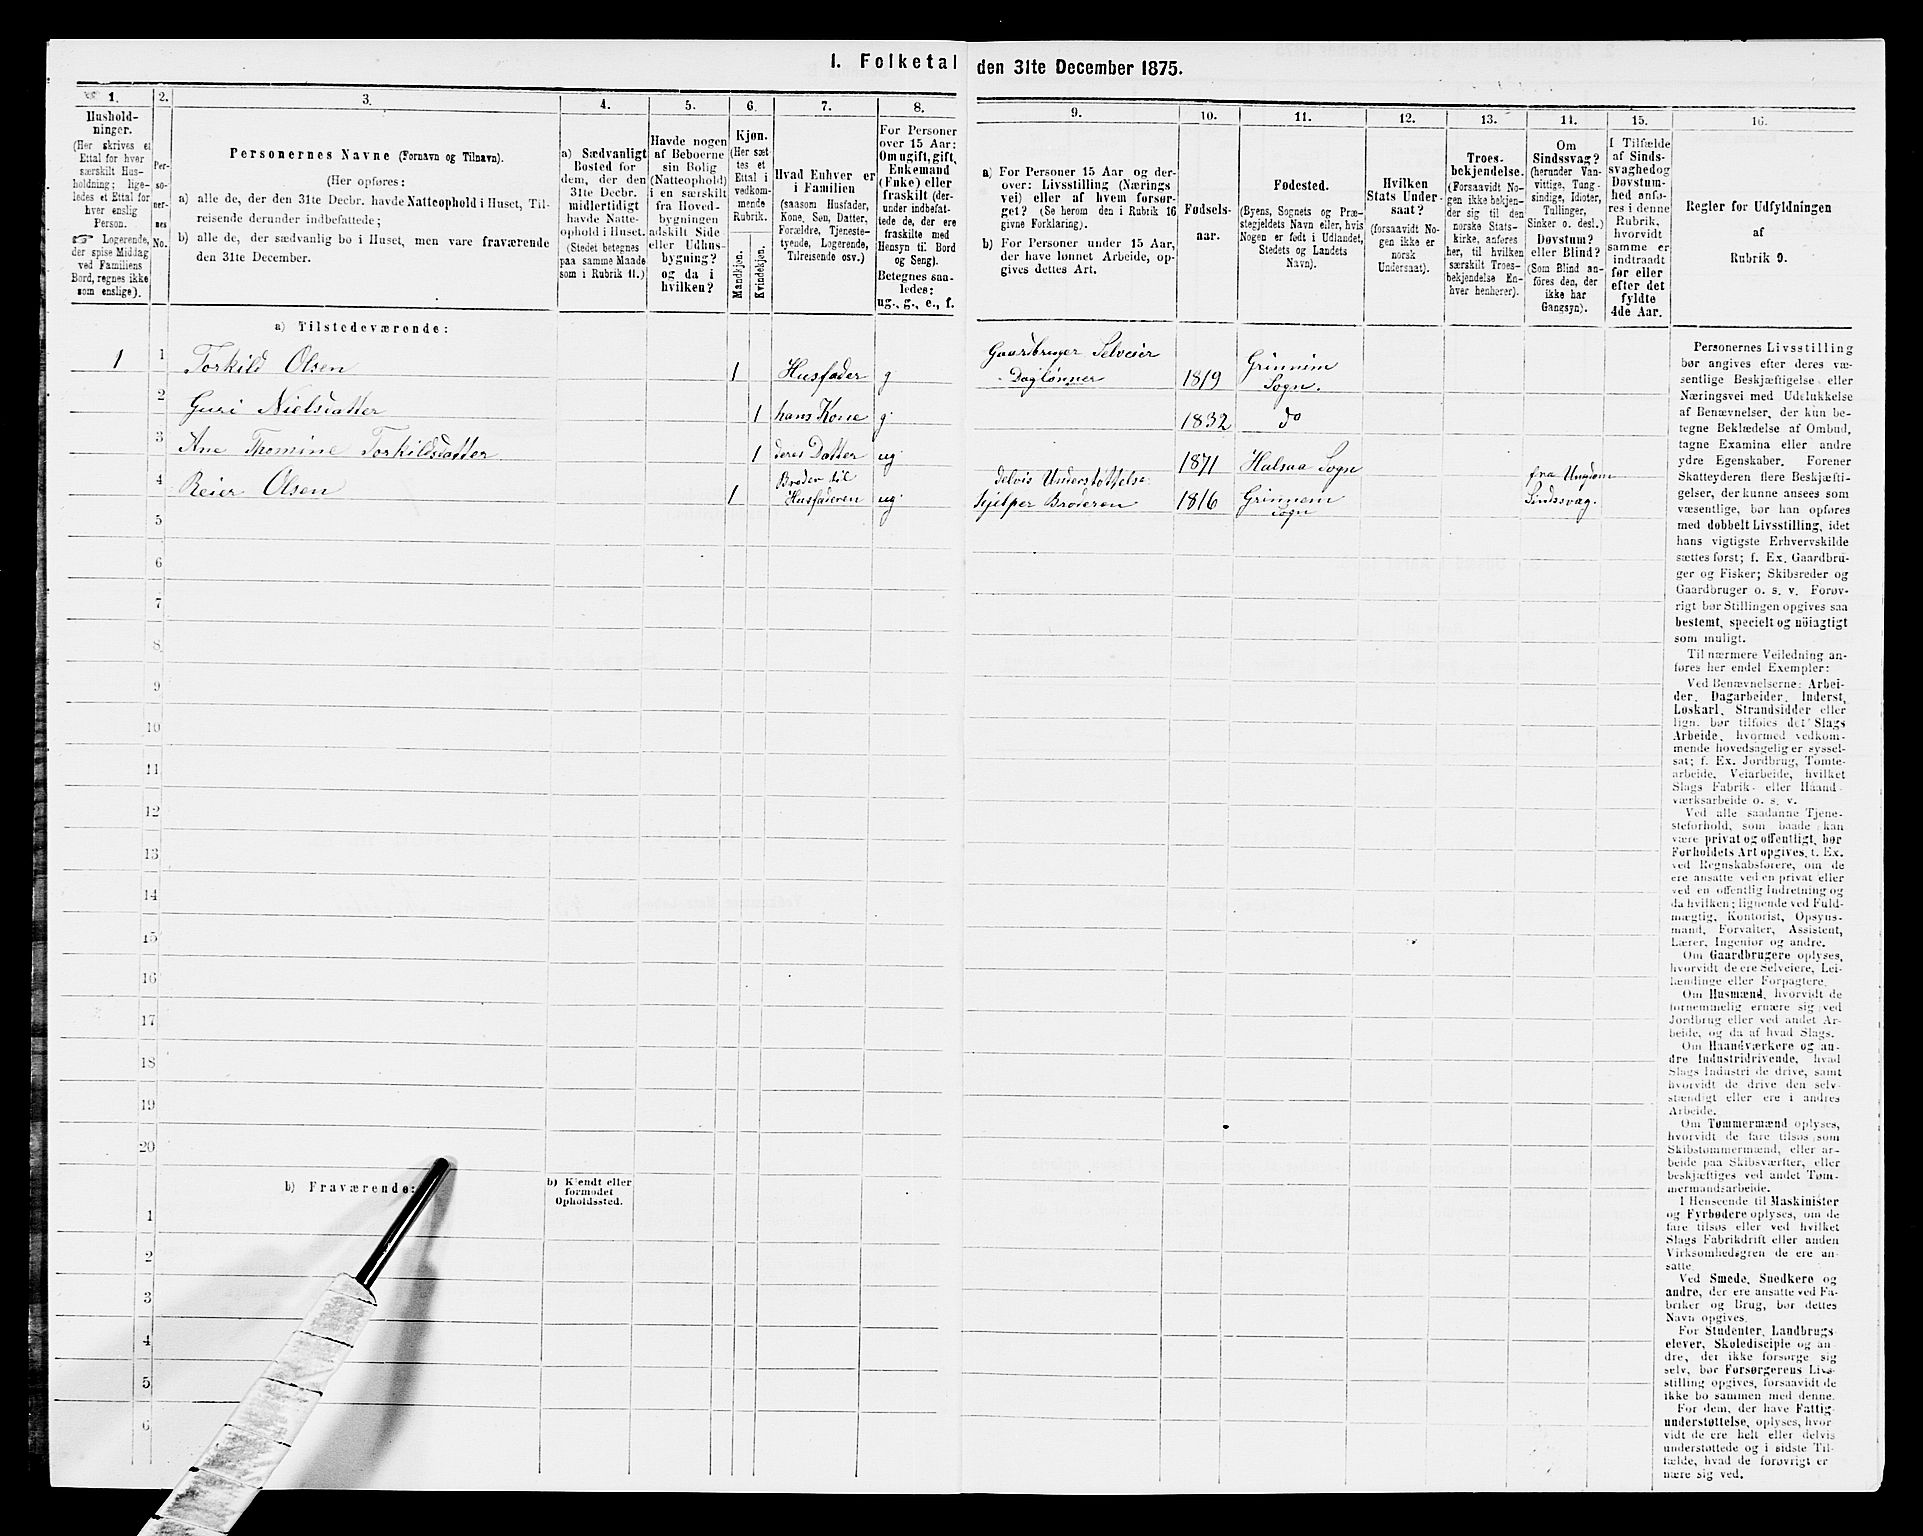 I. Folketal den 31te December 1875.
1.
Hushold-
ninger.
(Her skrives et
Ettal for hver
særskilt Hus-
holdning; lige-
ledes et Ettal for
hver enslig
Person.
☞ Logerende,
der spise Middag
ved Familiens
Bord, regnes ikke
som enslige).
2.
Per-
so-
ner-
nes
No.
3.
Personernes Navne (Fornavn og Tilnavn).
(Her opføres:
a) alle de, der den 31te Decbr. havde Natteophold i Huset, Til-
reisende derunder indbefattede;
b) alle de, der sædvanlig bo i Huset, men vare fraværende
den 31te December.
4.
a) Sædvanligt
Bosted for
dem, der den
31te Decbr.
midlertidigt
havde Natte-
ophold i Huset.
(Stedet betegnes
paa samme Maade
som i Rubrik 11.)
5.
Havde nogen
af Beboerne
sin Bolig
(Natteophold)
i en særskilt
fra Hoved-
bygningen
adskilt Side
eller Udhus-
bygning?
og da i
hvilken?
6.
Kjøn.
(Her sæt
tes et
Ettal i
vedkom-
mende
Rubrik.
Mandkjøn.
Kvindekjøn.
7.
Hvad Enhver er
i Familien
(saasom Husfader,
Kone, Søn, Datter,
Forældre, Tjeneste-
tyende, Logerende,
Tilreisende osv.)
8.
For Personer
over 15 Aar:
Om ugift, gift,
Enkemand
(Enke) eller
fraskilt (der-
under indbefat-
tede de, der ere
fraskilte med
Hensyn til Bord
og Seng).
Betegnes saa-
ledes:
ug., g., e., f.
9.
a) For Personer 15 Aar og der-
over: Livsstilling (Nærings
vei) eller af hvem forsør-
get? (Se herom den i Rubrik 16
givne Forklaring).
b) For Personer under 15 Aar,
der have lønnet Arbeide, op-
gives dettes Art.
10.
Fødsels-
aar.
11.
Fødested.
(Byens, Sognets og Præ-
stegjeldets Navn eller, hvis
Nogen er født i Udlandet,
Stedets og Landets
Navn).
12.
Hvilken
Stats Under-
saat?
(forsaavidt No-
gen ikke er
norsk
Undersaat).
13.
Troes-
bekjendelse.
(Forsaavidt No-
gen ikke bekjen-
der sig til den
norske Stats-
kirke, anføres
her, til hvilken
særskilt Troes-
bekjendelse En-
hver henhører).
14.
Om
Sindssvag?
(herunder Van-
vittige, Tung-
sindige, Idioter,
Tullinger,
Sinker o. desl.)
Døvstum?
eller Blind?
(Som Blind an-
føres den, der
ikke har
Gangsyn).
15.
I Tilfælde
af Sinds-
svaghed og
Døvstum-
hed anfø-
res i denne
Rubrik,
hvorvidt
samme er
indtraadt
før eller
efter det
fyldte
4de Aar.
16.
Regler for Udfyldningen
af
Rubrik 9.
a) Tilstedeværende:
1 1 Torkild Olsen 1 Husfader g Gaardbruger Selveier
Daglønner 1819 Grinnim
Sogn.
2 Guri Nielsdatter 1 hans Kone g. 1832 do
3 Ane Thomine Torkildsdatter 1 deres Datter ug. 1871 Halsaa Sogn
4 Reier Olsen 1 Broder til
Husfaderen ug. delvis Understøttelse
hjelper Broderen 1816 Grinnem
Sogn fra Ungdom
Sindssvag.
5
6
7
8
9
10
11
12
13
14
15
16
17
18
19
20
b) Fraværende:
b) Kjendt eller
formodet
Opholdssted.
1
2
3
4
5
6
Personernes Livsstilling
bør angives efter deres væ-
sentlige Beskjæftigelse eller
Næringsvei med Udelukkelse
af Benævnelser, der kun be-
tegne Beklædelse af Ombud,
tagne Examina eller andre
ydre Egenskaber. Forener
Skatteyderen flere Beskjæfti-
gelser, der kunne ansees som
væsentlige, bør han opføres
med dobbelt Livsstilling, idet
hans vigtigste Erhvervskilde
sættes først; f. Ex. Gaardbru-
ger og Fisker; Skibsreder og
Gaardbruger o. s. v. Forøv-
rigt bør Stillingen opgives saa
bestemt, specielt og nöiagtigt
som muligt.
Til nærmere Veiledning an-
føres her endel Exempler:
Ved Benævnelserne: Arbei-
der, Dagarbeider, Inderst,
Løskarl, Strandsidder eller
lign. bør tilføies det Slags
Arbeide, hvormed vedkom-
mende hovedsagelig er syssel-
sat; f. Ex. Jordbrug, Tomte-
arbeide, Veiarbeide, hvilket
Slags Fabrik- eller Haand-
værksarbeide o. s. v.
Ved alle saadanne Tjene-
steforhold, som baade kan
være privat og offentligt, bør
Forholdets Art opgives, f. Ex.
ved Regnskabsførere, om de
ere ansatte ved en privat eller
ved en offentlig Indretning og
da hvilken; lignende ved Fuld-
mægtig, Kontorist, Opsyns-
mand, Forvalter, Assistent,
Lærer, Ingeniør og andre.
Om Gaardbrugere oplyses,
hvorvidt de ere Selveiere, Lei-
lændinge eller Forpagtere.
Om Husmænd, hvorvidt de
fornemmelig ernære sig ved
Jordbrug eller ved andet Ar-
beide, og da af hvad Slags.
Om Haandværkere og an-
dre Industridrivende, hvad
Slags Industri de drive, samt
hvorvidt de drive den selv-
stændigt eller ere i andres
Arbeide.
Om Tømmermænd oplyses,
hvorvidt de fare tilsøs som
Skibstømmermænd, eller ar-
beide paa Skibsværfter, eller
beskjæftiges ved andet Tøm-
mermandsarbeide.
I Henseende til Maskinister
og Fyrbødere oplyses, om de
fare tilsøs eller ved hvilket
Slags Fabrikdrift eller anden
Virksomhedsgren de ere an-
satte.
Ved Smede, Snedkere og
andre, der ere ansatte ved Fa-
briker og Brug, bør dettes
Navn opgives.
For Studenter, Landbrugs-
elever, Skoledisciple og an-
dre, der ikke forsørge sig
selv, bør Forsørgerens Livs-
stilling opgives, forsaavidt de
ikke bo sammen med denne.
For dem, der have Fattig-
understøttelse, oplyses, hvor-
vidt de ere helt eller delvis
understøttede og i sidste Til-
fælde, hvad de forøvrigt er
nære sig ved.